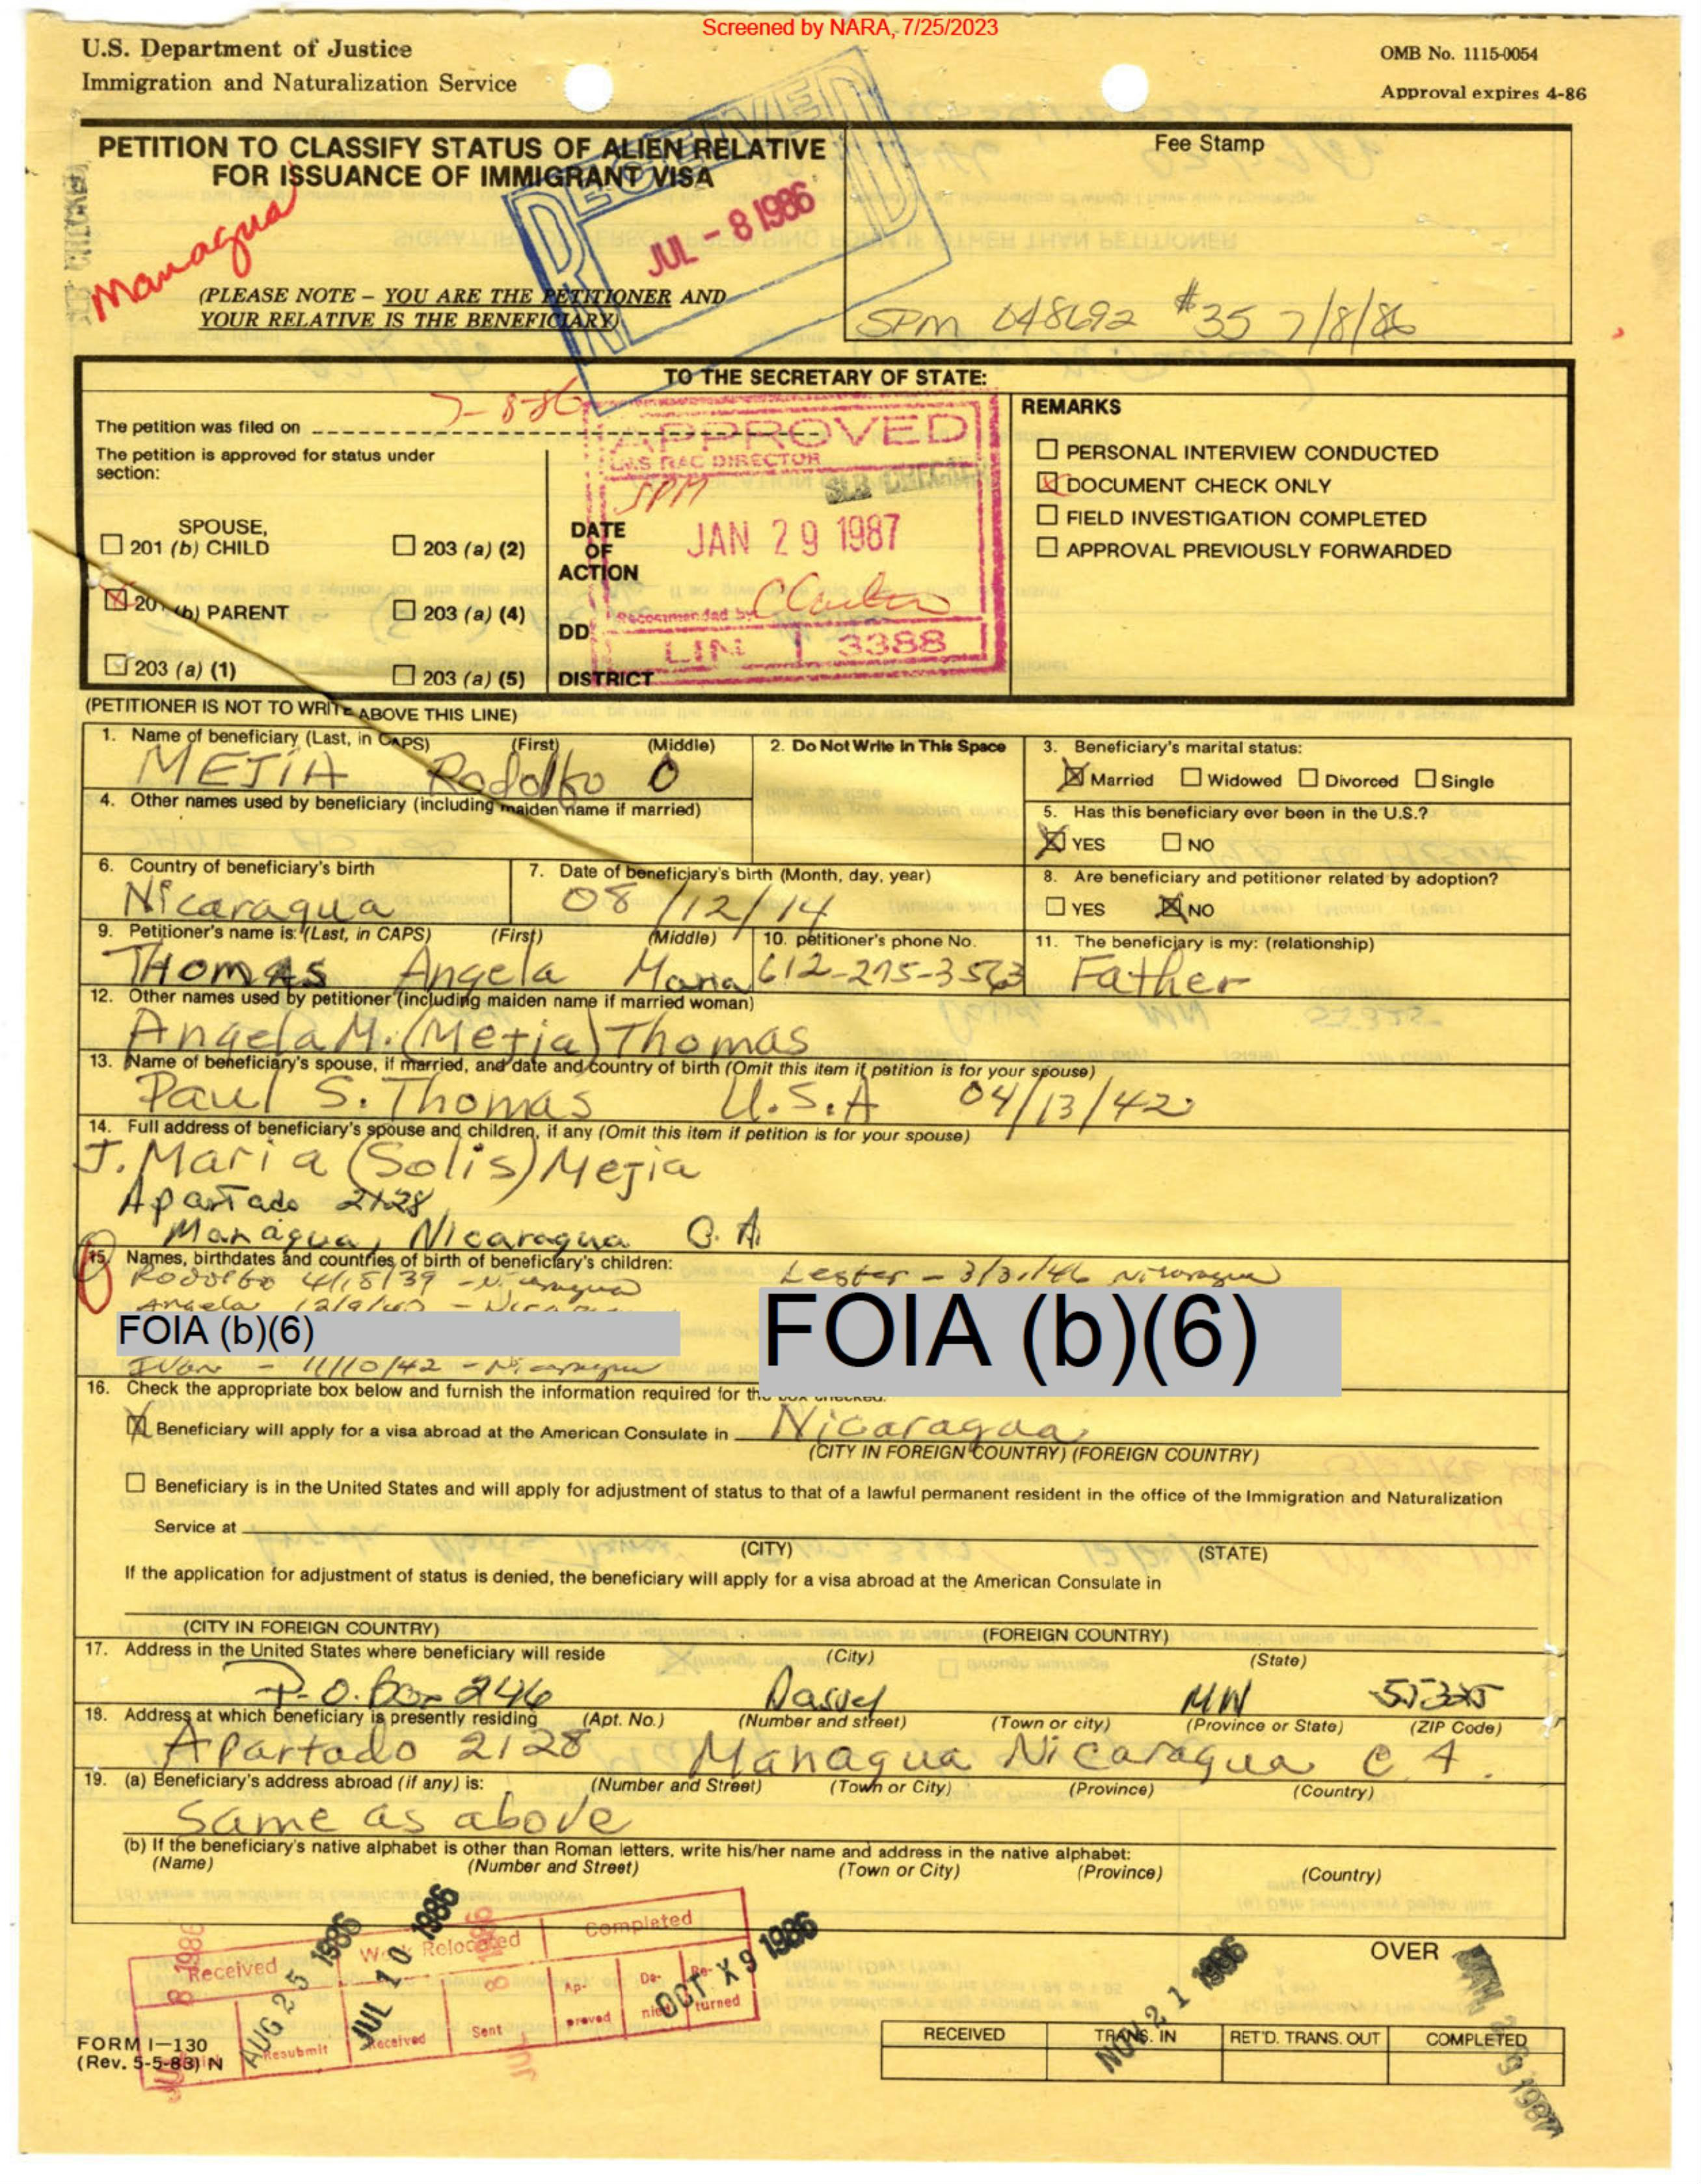 Screened by NARA, 7/25/2023
U.S. Department of Justice
Immigration and Naturalization Service
OMB No. 1115-0054
Approval expires 4-86
PETITION TO CLASSIFY STATUS OF ALIEN RELATIVE
FOR ISSUANCE OF IMMIGRANT VISA
Managua
RECEIVED
JUL - 8 1986
Fee Stamp
SPM 048692 #35 7/8/86
(PLEASE NOTE – YOU ARE THE PETITIONER AND
YOUR RELATIVE IS THE BENEFICIARY)
TO THE SECRETARY OF STATE:
The petition was filed on 7-8-86
The petition is approved for status under
section:
SPOUSE,
201 (b) CHILD
203 (a) (2)
201 (b) PARENT
203 (a) (4)
203 (a) (1)
203 (a) (5)
DATE
OF
ACTION
DD
DISTRICT
APPROVED
INS RAC DIRECTOR
SPM
JAN 29 1987
Recommended by
LIN 3388
REMARKS
PERSONAL INTERVIEW CONDUCTED
DOCUMENT CHECK ONLY
FIELD INVESTIGATION COMPLETED
APPROVAL PREVIOUSLY FORWARDED
(PETITIONER IS NOT TO WRITE ABOVE THIS LINE)
1. Name of beneficiary (Last, in CAPS) (First) (Middle)
MEJIA Rodolfo O
2. Do Not Write In This Space
3. Beneficiary's marital status:
Married Widowed Divorced Single
4. Other names used by beneficiary (including maiden name if married)
5. Has this beneficiary ever been in the U.S.?
YES NO
6. Country of beneficiary's birth
Nicaragua
7. Date of beneficiary's birth (Month, day, year)
08/12/14
8. Are beneficiary and petitioner related by adoption?
YES NO
9. Petitioner's name is: (Last, in CAPS) (First) (Middle)
THOMAS Angela Maria
10. petitioner's phone No.
612-275-3563
11. The beneficiary is my: (relationship)
Father
12. Other names used by petitioner (including maiden name if married woman)
Angela M. (Mejia) Thomas
13. Name of beneficiary's spouse, if married, and date and country of birth (Omit this item if petition is for your spouse)
Paul S. Thomas U.S.A 04/13/42
14. Full address of beneficiary's spouse and children, if any (Omit this item if petition is for your spouse)
J. Maria (Solis) Mejia
Apartado 2128
Managua, Nicaragua C.A.
15. Names, birthdates and countries of birth of beneficiary's children:
Rodolfo 4/18/39 - Nicaragua Lester - 3/31/46 Nicaragua
Angela 12/9/40 - Nicaragua
FOIA (b)(6)
FOIA (b)(6)
Ivan - 11/10/42 - Nicaragua
16. Check the appropriate box below and furnish the information required for the box checked:
Beneficiary will apply for a visa abroad at the American Consulate in Nicaragua
(CITY IN FOREIGN COUNTRY) (FOREIGN COUNTRY)
Beneficiary is in the United States and will apply for adjustment of status to that of a lawful permanent resident in the office of the Immigration and Naturalization
Service at
(CITY) (STATE)
If the application for adjustment of status is denied, the beneficiary will apply for a visa abroad at the American Consulate in
(CITY IN FOREIGN COUNTRY) (FOREIGN COUNTRY)
17. Address in the United States where beneficiary will reside (City) (State)
P.O. Box 246 Dassel MN 55325
18. Address at which beneficiary is presently residing (Apt. No.) (Number and street) (Town or city) (Province or State) (ZIP Code)
Apartado 2128 Managua Nicaragua C.A.
19. (a) Beneficiary's address abroad (if any) is: (Number and Street) (Town or City) (Province) (Country)
Same as above
(b) If the beneficiary's native alphabet is other than Roman letters, write his/her name and address in the native alphabet:
(Name) (Number and Street) (Town or City) (Province) (Country)
Received Work Relocated Completed
AUG 25 1986
JUL 10 1986
OCT 9 1986
Resubmit Received Sent Approved Denied Returned
NOV 21 1986
OVER
JAN 29 1987
FORM I-130
(Rev. 5-5-83) N
RECEIVED TRANS. IN RET'D. TRANS. OUT COMPLETED